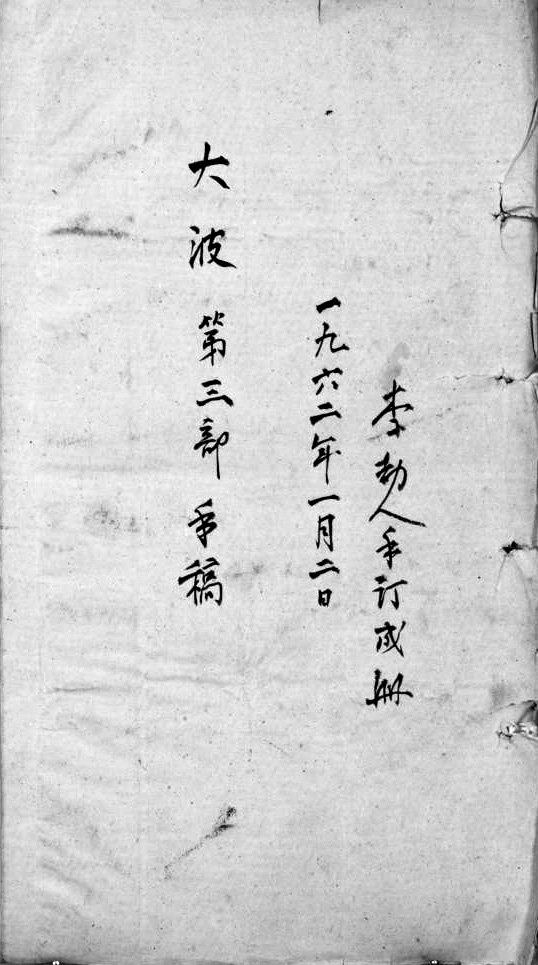 李劼人手订成册
一九六二年一月二日
大波 第三部 手稿